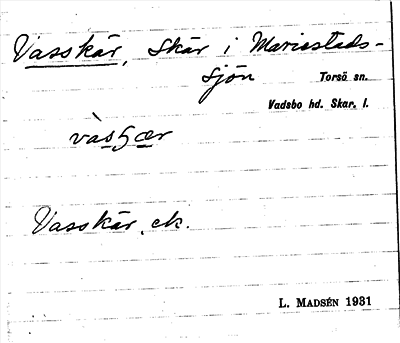 Vasskär, skär i Mariestads-
sjön Torsö sn.
Vadsbo hd. Skar. l.
Vasskär, ek.
L. MADSÉN 1931